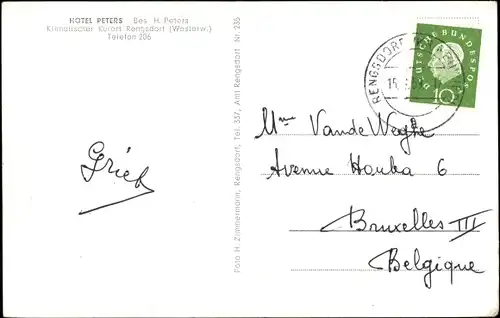 HOTEL PETERS Bes. H. Peters
Klimatischer Kurort Rengsdorf (Westerw.)
Telefon 206
Grief
Foto H. Zimmermann, Rengsdorf, Tel. 357, Amt Rengsdorf Nr. 236
RENGSDORF
DEUTSCHE BUNDESPOST
10
Mme Van de Weghe
Avenue Houba 6
Bruxelles III
Belgique